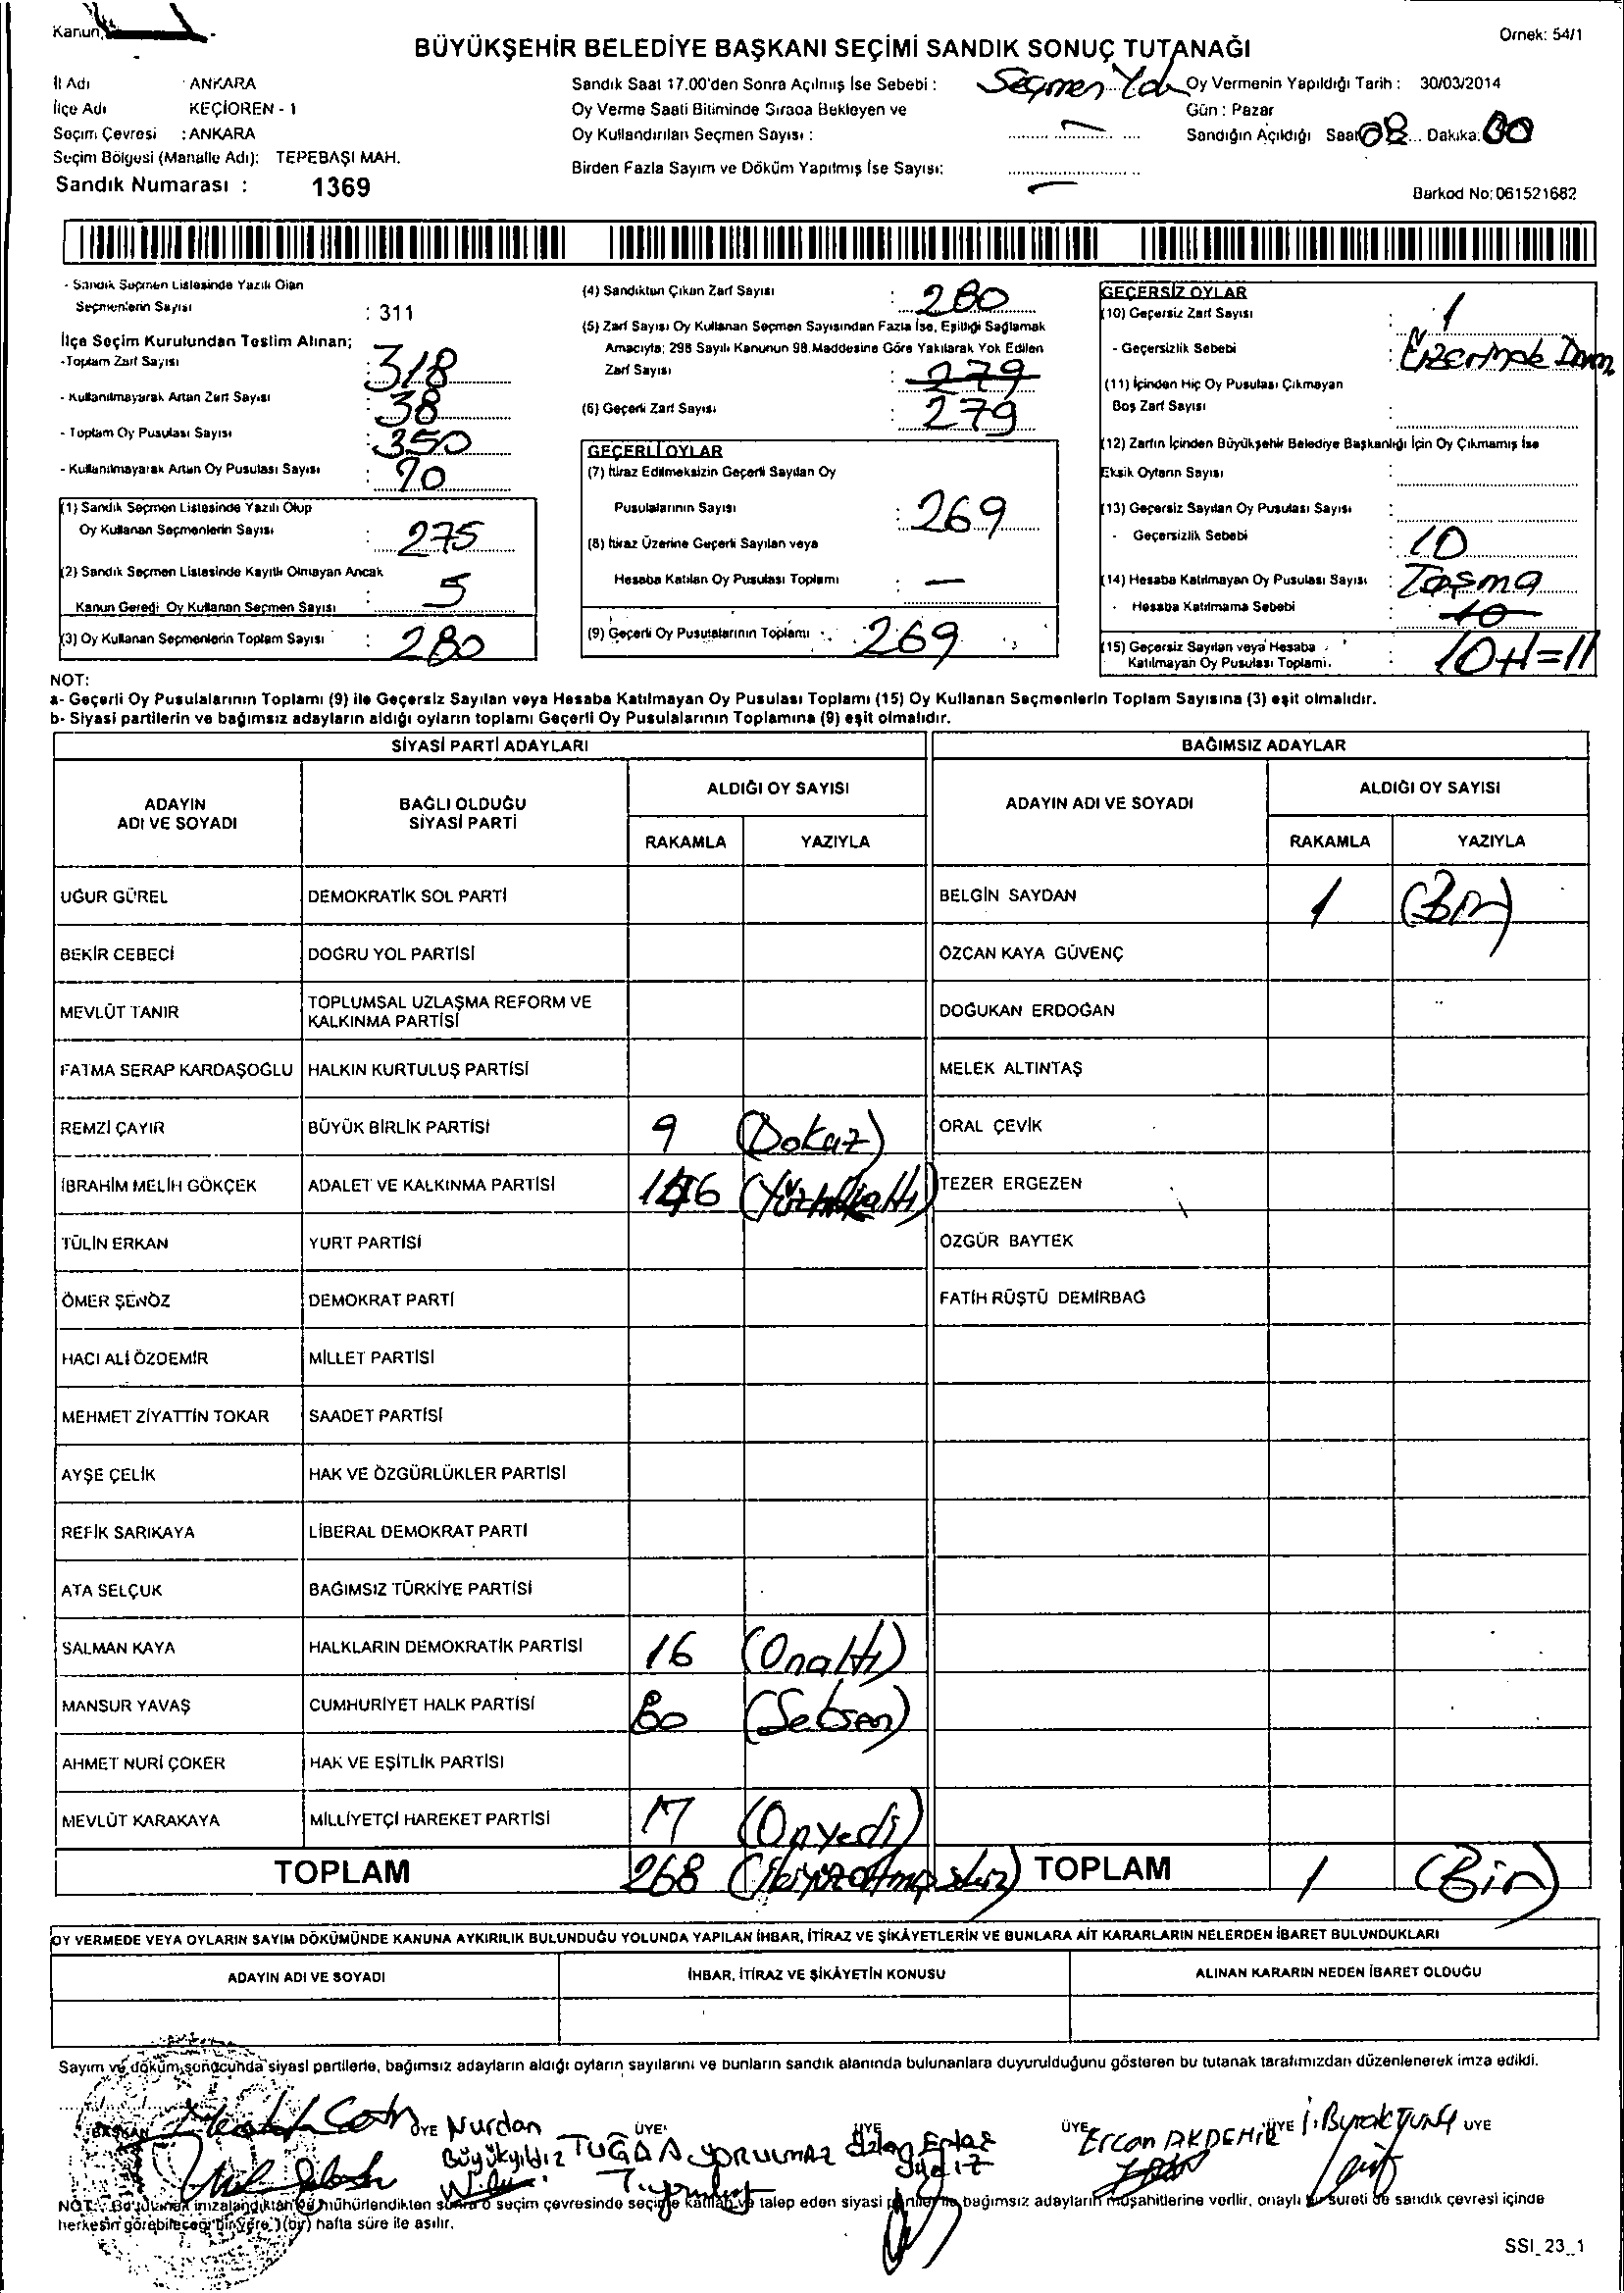 Kanun
Örnek: 54/1
BÜYÜKŞEHİR BELEDİYE BAŞKANI SEÇİMİ SANDIK SONUÇ TUTANAĞI
İl Adı : ANKARA
İlçe Adı KEÇİÖREN - 1
Seçim Çevresi : ANKARA
Seçim Bölgesi (Mahalle Adı): TEPEBAŞI MAH.
Sandık Numarası : 1369
Sandık Saat 17.00'den Sonra Açılmış İse Sebebi : Seçmen Yok
Oy Verme Saati Bitiminde Sırada Bekleyen ve
Oy Kullandırılan Seçmen Sayısı : —
Birden Fazla Sayım ve Döküm Yapılmış İse Sayısı: —
Oy Vermenin Yapıldığı Tarih : 30/03/2014
Gün : Pazar
Sandığın Açıldığı Saat 08 Dakika: 00
Barkod No: 061521682
- Sandık Seçmen Listesinde Yazılı Olan
Seçmenlerin Sayısı : 311
İlçe Seçim Kurulundan Teslim Alınan;
-Toplam Zarf Sayısı : 318
- Kullanılmayarak Artan Zarf Sayısı : 38
- Toplam Oy Pusulası Sayısı : 350
- Kullanılmayarak Artan Oy Pusulası Sayısı : 70
(1) Sandık Seçmen Listesinde Yazılı Olup
Oy Kullanan Seçmenlerin Sayısı : 275
(2) Sandık Seçmen Listesinde Kayıtlı Olmayan Ancak
Kanun Gereği Oy Kullanan Seçmen Sayısı : 5
(3) Oy Kullanan Seçmenlerin Toplam Sayısı : 280
(4) Sandıktan Çıkan Zarf Sayısı : 280
(5) Zarf Sayısı Oy Kullanan Seçmen Sayısından Fazla İse, Eşitliği Sağlamak
Amacıyla; 298 Sayılı Kanunun 98.Maddesine Göre Yakılarak Yok Edilen
Zarf Sayısı : 279
(6) Geçerli Zarf Sayısı : 279
GEÇERLİ OYLAR
(7) İtiraz Edilmeksizin Geçerli Sayılan Oy
Pusulalarının Sayısı : 269
(8) İtiraz Üzerine Geçerli Sayılan veya
Hesaba Katılan Oy Pusulası Toplamı : —
(9) Geçerli Oy Pusulalarının Toplamı : 269
GEÇERSİZ OYLAR
(10) Geçersiz Zarf Sayısı : 1
- Geçersizlik Sebebi : Üzerinde
(11) İçinden Hiç Oy Pusulası Çıkmayan
Boş Zarf Sayısı :
(12) Zarfın İçinden Büyükşehir Belediye Başkanlığı İçin Oy Çıkmamış İse
Eksik Oyların Sayısı :
(13) Geçersiz Sayılan Oy Pusulası Sayısı :
- Geçersizlik Sebebi : 10
(14) Hesaba Katılmayan Oy Pusulası Sayısı : Taşma
- Hesaba Katılmama Sebebi 10
(15) Geçersiz Sayılan veya Hesaba
Katılmayan Oy Pusulası Toplamı. : 10+1=11
NOT:
a- Geçerli Oy Pusulalarının Toplamı (9) ile Geçersiz Sayılan veya Hesaba Katılmayan Oy Pusulası Toplamı (15) Oy Kullanan Seçmenlerin Toplam Sayısına (3) eşit olmalıdır.
b- Siyasi partilerin ve bağımsız adayların aldığı oyların toplamı Geçerli Oy Pusulalarının Toplamına (9) eşit olmalıdır.
SİYASİ PARTİ ADAYLARI BAĞIMSIZ ADAYLAR
ADAYIN ADI VE SOYADI BAĞLI OLDUĞU SİYASİ PARTİ ALDIĞI OY SAYISI ADAYIN ADI VE SOYADI ALDIĞI OY SAYISI
RAKAMLA YAZIYLA RAKAMLA YAZIYLA
UĞUR GÜREL DEMOKRATİK SOL PARTİ BELGİN SAYDAN 1 (Bir)
BEKİR CEBECİ DOĞRU YOL PARTİSİ ÖZCAN KAYA GÜVENÇ
MEVLÜT TANIR TOPLUMSAL UZLAŞMA REFORM VE KALKINMA PARTİSİ DOĞUKAN ERDOĞAN
FATMA SERAP KARDAŞOĞLU HALKIN KURTULUŞ PARTİSİ MELEK ALTINTAŞ
REMZİ ÇAYIR BÜYÜK BİRLİK PARTİSİ 9 (Dokuz) ORAL ÇEVİK
İBRAHİM MELİH GÖKÇEK ADALET VE KALKINMA PARTİSİ 146 TEZER ERGEZEN
TÜLİN ERKAN YURT PARTİSİ ÖZGÜR BAYTEK
ÖMER ŞENÖZ DEMOKRAT PARTİ FATİH RÜŞTÜ DEMİRBAĞ
HACI ALİ ÖZDEMİR MİLLET PARTİSİ
MEHMET ZİYATTİN TOKAR SAADET PARTİSİ
AYŞE ÇELİK HAK VE ÖZGÜRLÜKLER PARTİSİ
REFİK SARIKAYA LİBERAL DEMOKRAT PARTİ
ATA SELÇUK BAĞIMSIZ TÜRKİYE PARTİSİ
SALMAN KAYA HALKLARIN DEMOKRATİK PARTİSİ 16 (Onaltı)
MANSUR YAVAŞ CUMHURİYET HALK PARTİSİ 80 (Seksen)
AHMET NURİ ÇOKER HAK VE EŞİTLİK PARTİSİ
MEVLÜT KARAKAYA MİLLİYETÇİ HAREKET PARTİSİ 17 (Onyedi)
TOPLAM 268 (İkiyüzaltmışsekiz) TOPLAM 1 (Bir)
OY VERMEDE VEYA OYLARIN SAYIM DÖKÜMÜNDE KANUNA AYKIRILIK BULUNDUĞU YOLUNDA YAPILAN İHBAR, İTİRAZ VE ŞİKÂYETLERİN VE BUNLARA AİT KARARLARIN NELERDEN İBARET BULUNDUKLARI
ADAYIN ADI VE SOYADI İHBAR, İTİRAZ VE ŞİKÂYETİN KONUSU ALINAN KARARIN NEDEN İBARET OLDUĞU
Sayım ve döküm sonucunda siyasi partilerle, bağımsız adayların aldığı oyların sayılarını ve bunların sandık alanında bulunanlara duyurulduğunu gösteren bu tutanak tarafımızdan düzenlenerek imza edildi.
BAŞKAN ÜYE Nurdan Büyükyıldız ÜYE TUĞBA YORULMAZ ÜYE ÜYE Ercan AKDEMİR ÜYE İ.Burak TUNÇ ÜYE
NOT: Bu tutanak imzalandıktan ve mühürlendikten sonra o seçim çevresinde seçime katılan ve talep eden siyasi partiler ile bağımsız adayların müşahitlerine verilir, onaylı bir sureti de sandık çevresi içinde
herkesin görebileceği bir yere 1 (bir) hafta süre ile asılır.
SSI_23_1